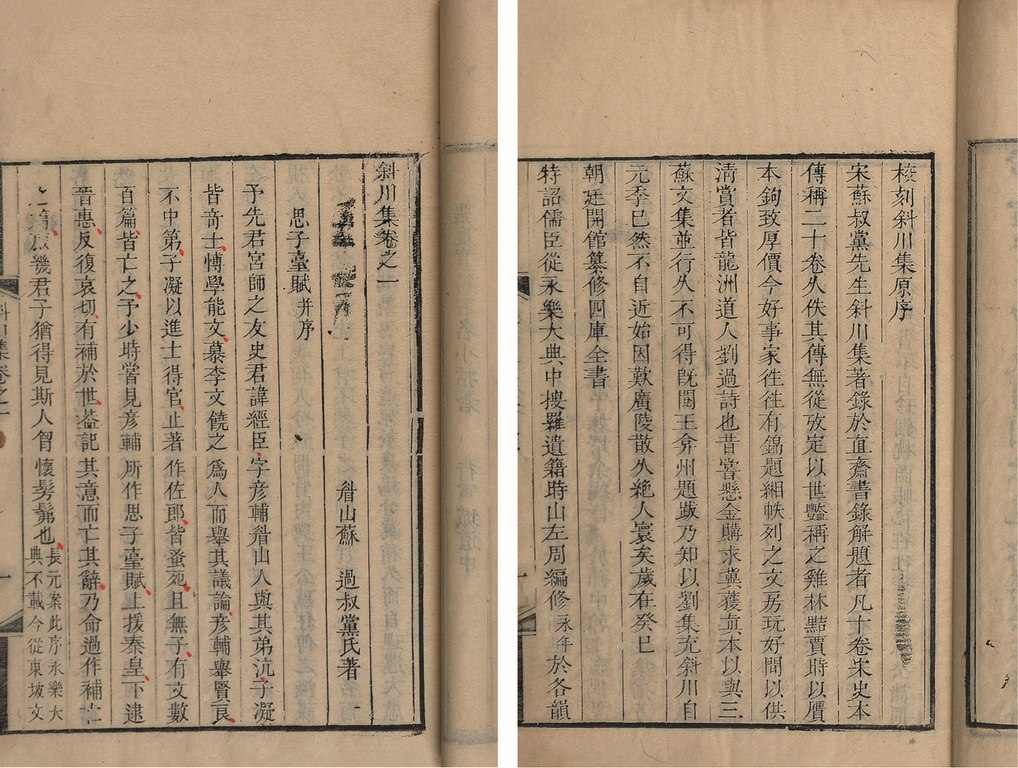 挍刻斜川集原序
宋蘇叔黨先生斜川集著錄於直齋書錄解題者凡十卷宋史本
傳稱二十卷久佚其傳無從攷定以世豔稱之雞林黠賈時以贋
本鉤致厚價今好事家往往有錦題緗帙列之文房玩好間以供
清賞者皆龍洲道人劉過詩也昔嘗懸金購求冀獲真本以與三
蘇文集並行久不可得旣閱王弇州題跋乃知以劉集充斜川自
元季已然不自近始因歎廣陵散久絶人寰矣歲在癸巳
朝廷開館纂修四庫全書
特詔儒臣從永樂大典中搜羅遺籍時山左周編修永年於各韻
斜川集卷之一
眉山蘇 過叔黨氏著
思子臺賦并序
予先君宮師之友史君諱經臣字彥輔眉山人與其弟沆子凝
皆奇士博學能文慕李文饒之爲人而舉其議論彥輔舉賢良
不中第子凝以進士得官止著作佐郎皆蚤死且無子有文數
百篇皆亡之予少時嘗見彥輔所作思子臺賦上援秦皇下逮
晉惠反復哀切有補於世葢記其意而亡其辭乃命過作補亡
之篇庶幾君子猶得見斯人胷懷髣髴也長元案此序永樂大
典不載今從東坡文